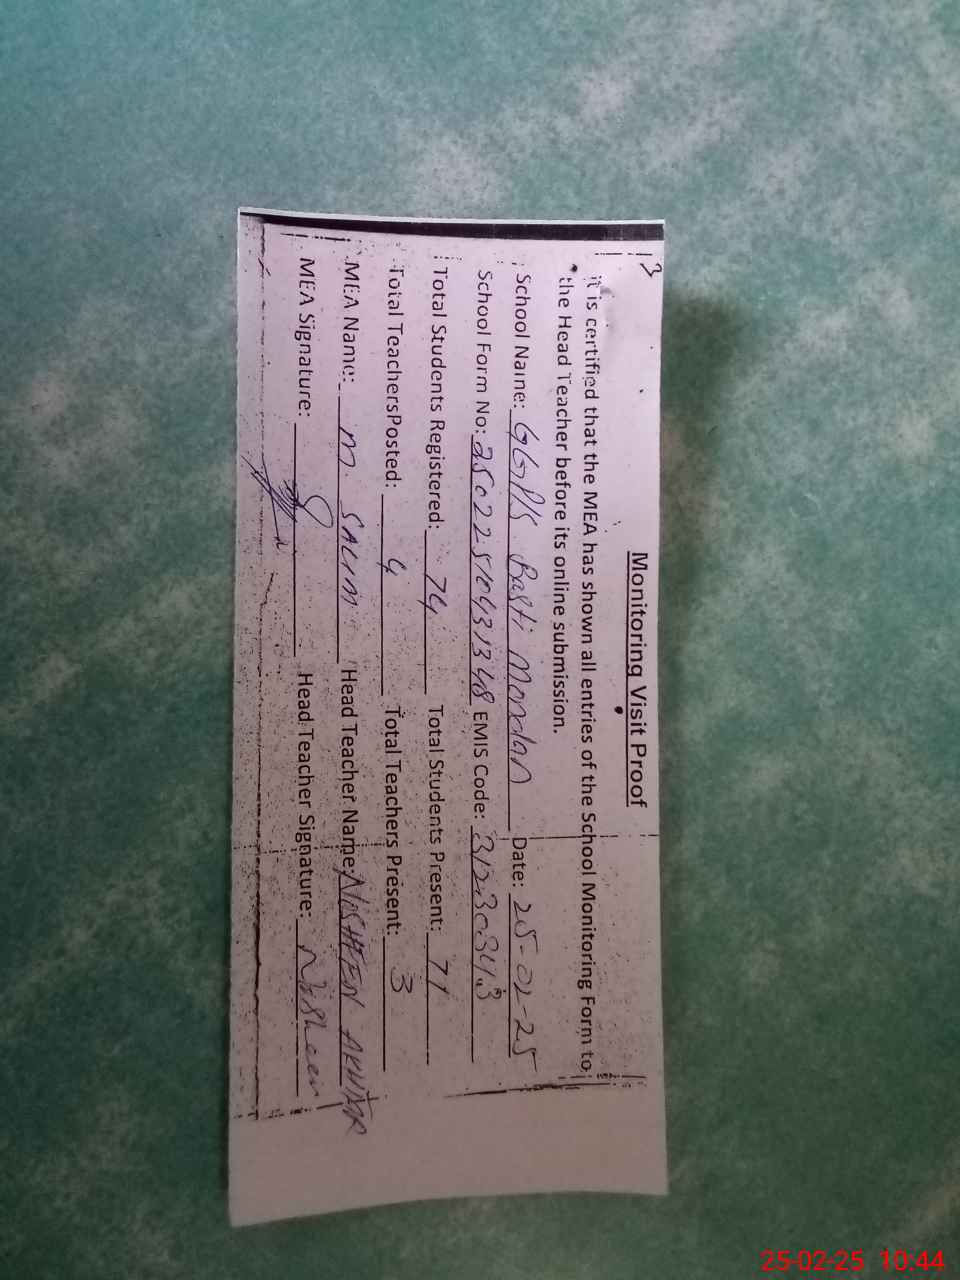 13
Monitoring Visit Proof
it is certified that the MEA has shown all entries of the School Monitoring Form to
the Head Teacher before its online submission.
School Name: GGPS Basti Date: 25-02-25
School Form No: 25022510431348 EMIS Code: 31230343
Total Students Registered: 74 Total Students Present: 71
Total Teachers Posted: 4 Total Teachers Present: 3
MEA Name: M. SALIM Head Teacher Name: NOSHEEN AKHTAR
MEA Signature: Head Teacher Signature: Nosheen
25-02-25 10:44